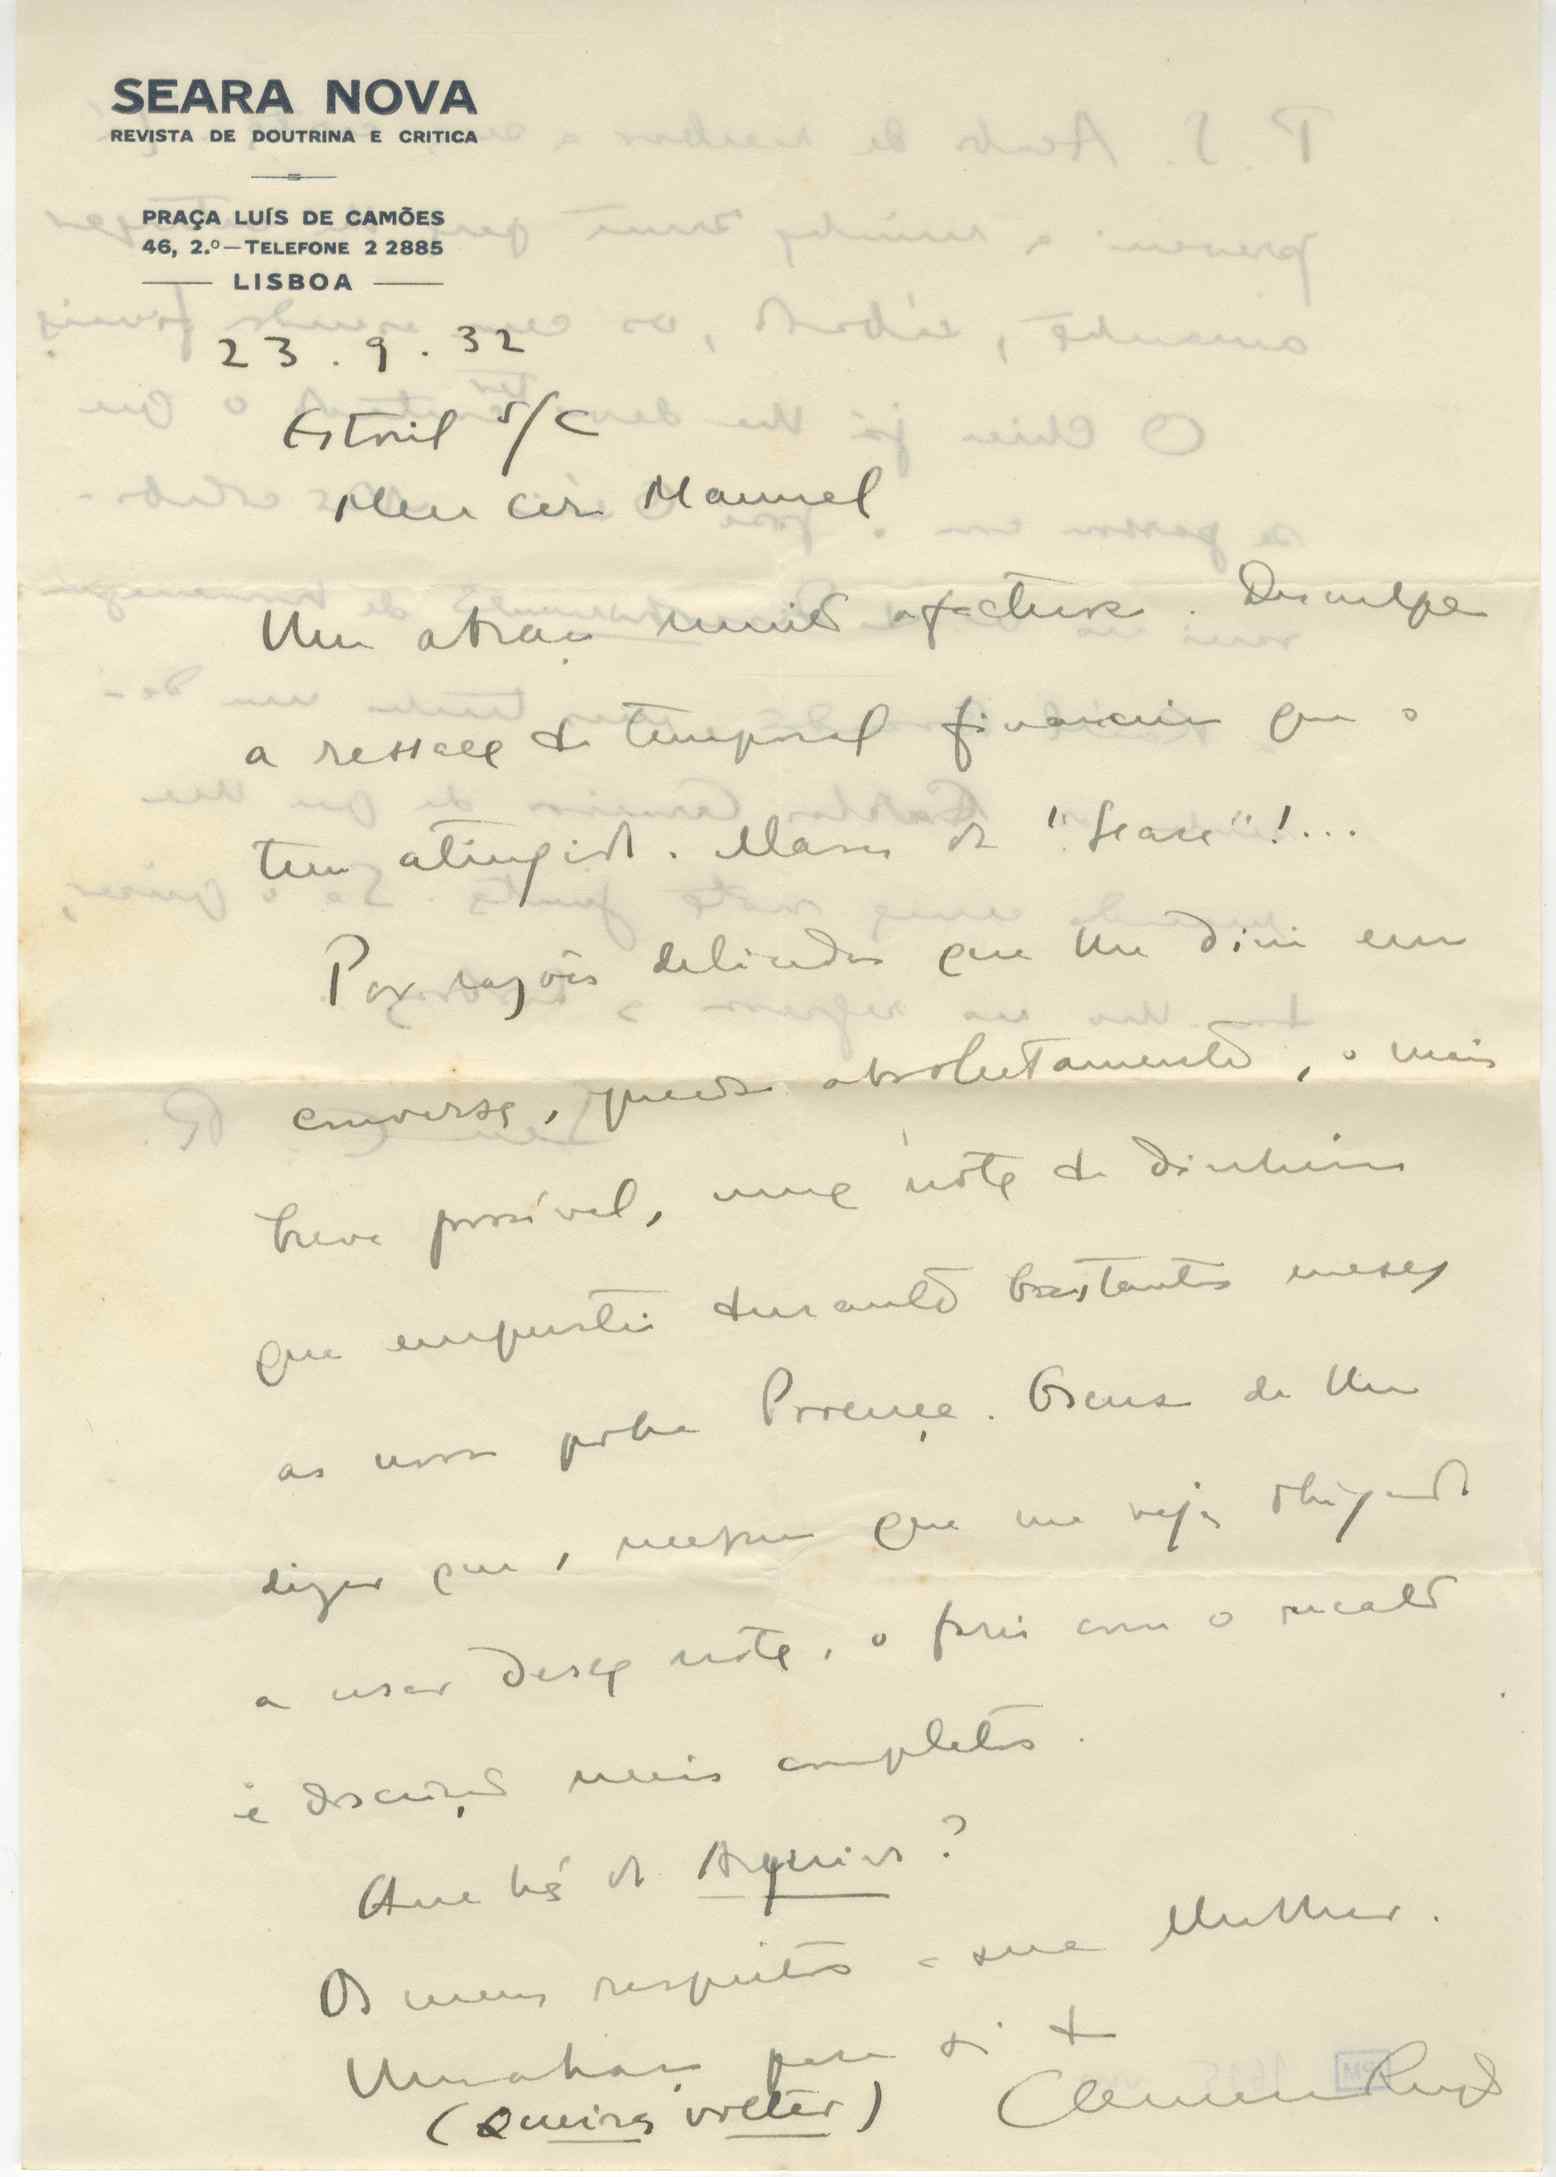 SEARA NOVA
REVISTA DE DOUTRINA E CRITICA
PRAÇA LUÍS DE CAMÕES
46, 2.º — TELEFONE 2 2885
LISBOA
23.9.32
Estoril s/c
Meu caro Manuel
Um abraço muito afectuoso. Desculpe
a ressaca do temporal financeiro que o
tem atingido. da "Seara"!...
Por razões delicadas que lhe direi em
conversa, preciso absolutamente, o mais
breve possível, uma nota do dinheiro
que emprestei durante bastantes meses
ao nosso pobre Proença. Escuso de lhe
dizer que, mesmo que me veja obrigado
a usar dessa nota, o farei com o recato
e discrição mais completos.
Que há do Arquivo?
Os meus respeitos a sua Mulher.
Um abraço para si do
(Queira voltar)